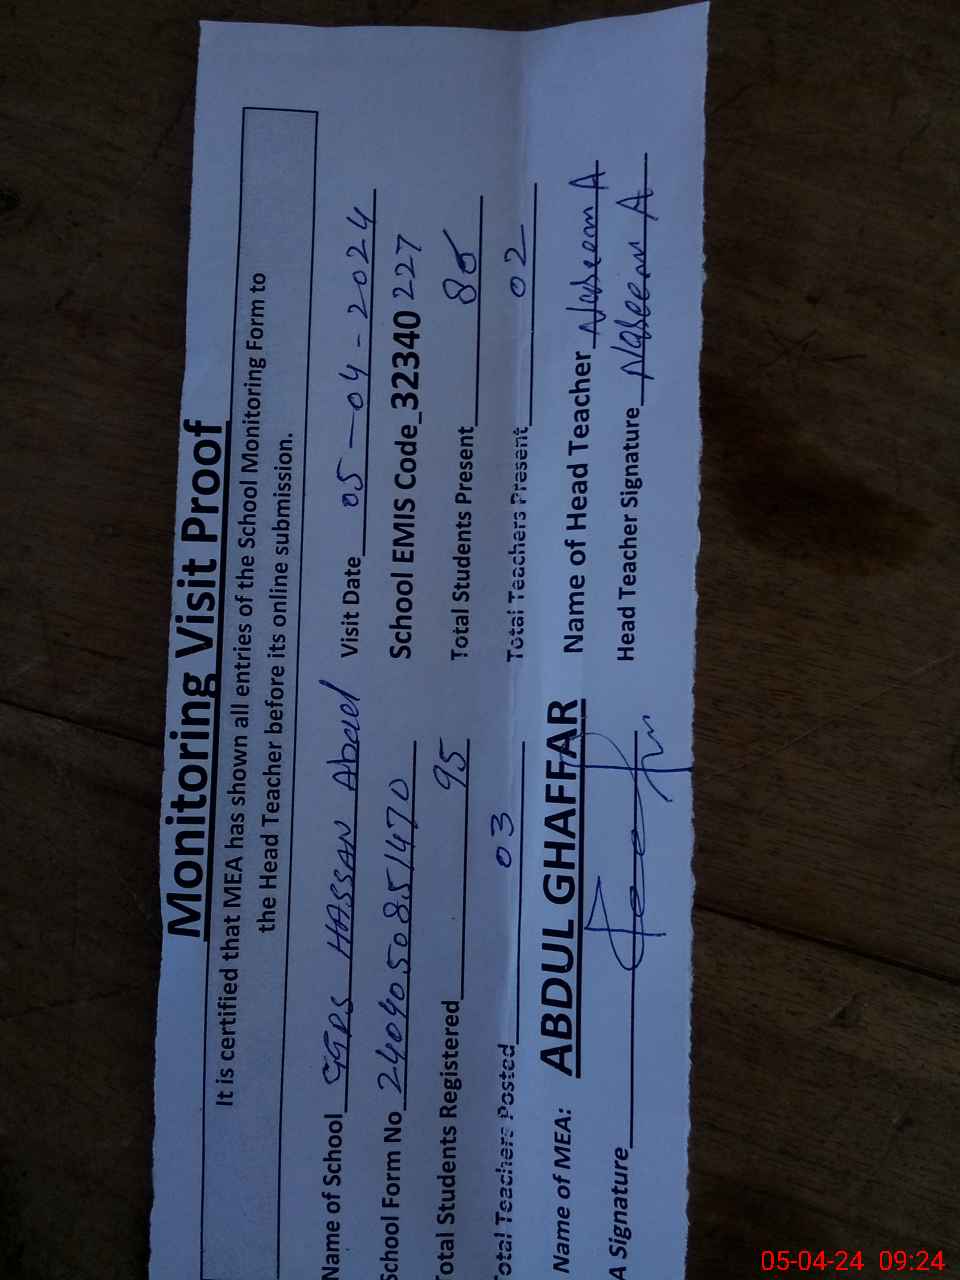 Monitoring Visit Proof
It is certified that MEA has shown all entries of the School Monitoring Form to
the Head Teacher before its online submission.
Name of School GGPS HASSAN Abad Visit Date 05-04-2024
School Form No 2404050851470 School EMIS Code_32340227
Total Students Registered 95 Total Students Present 85
Total Teachers Posted 03 Total Teachers Present 02
Name of MEA: ABDUL GHAFFAR Name of Head Teacher Naseem A
A Signature Head Teacher Signature Naseem A
05-04-24 09:24